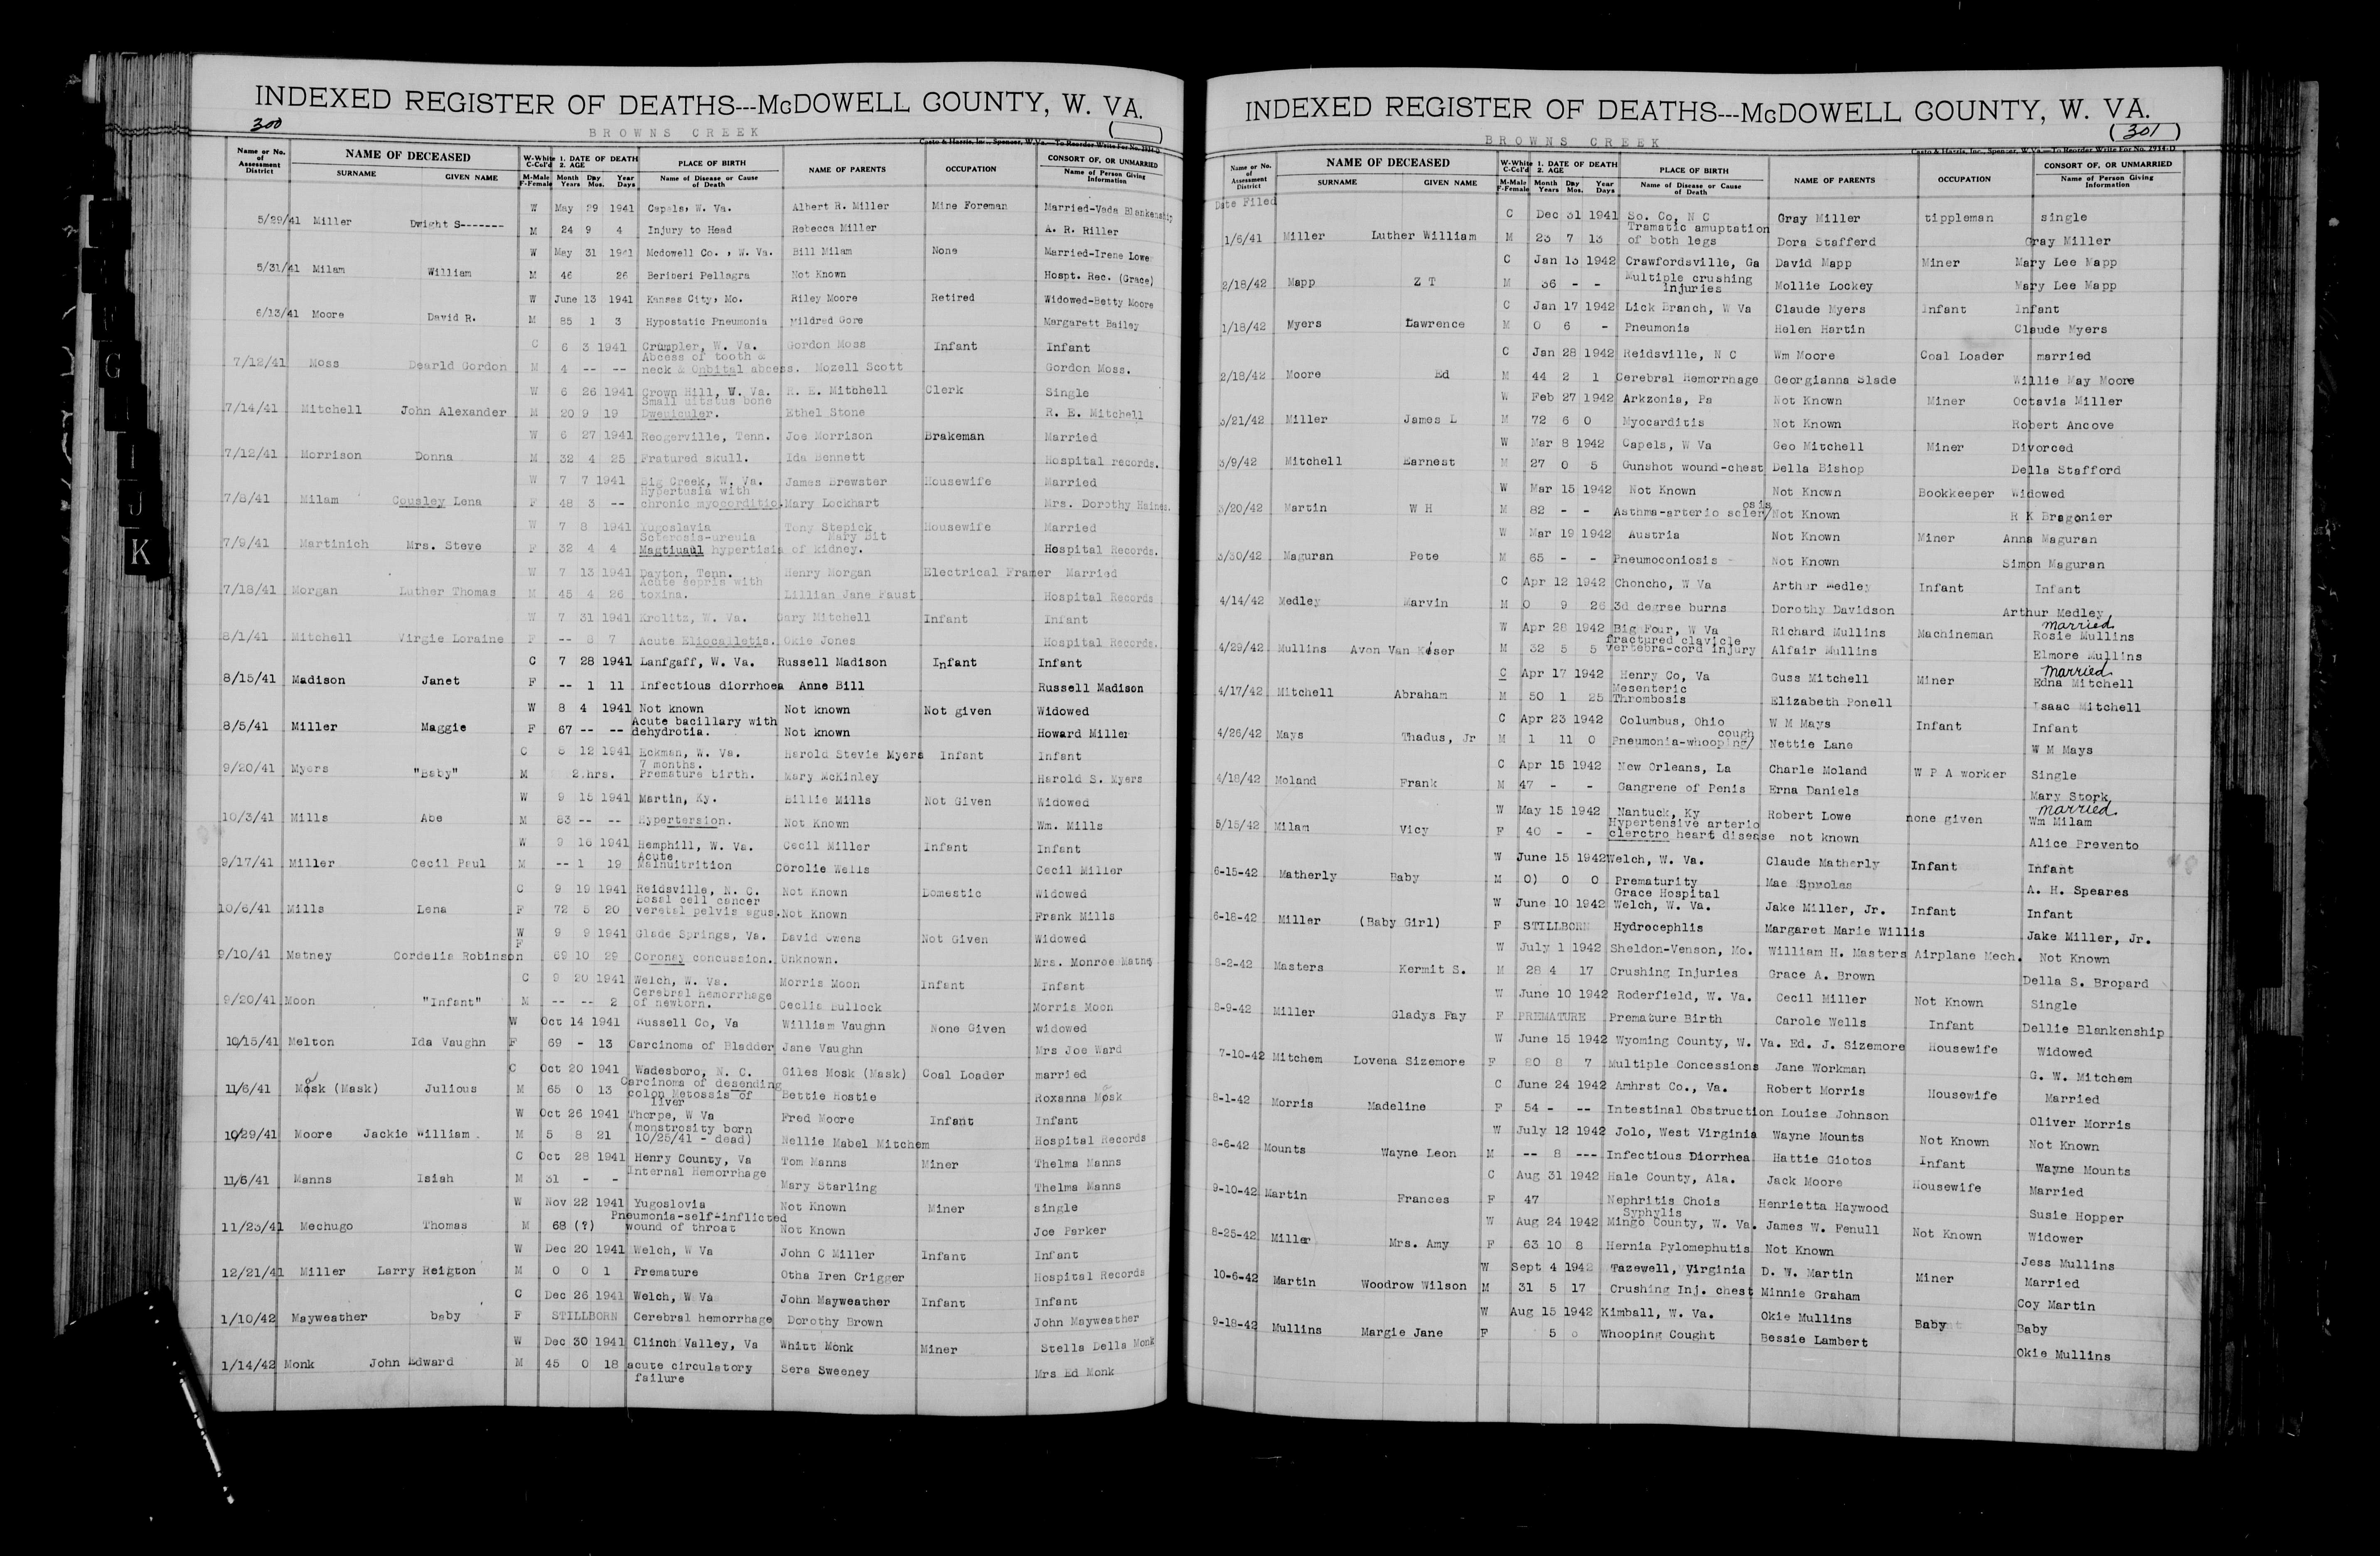 INDEXED REGISTER OF DEATHS---McDOWELL COUNTY, W. VA.
300
BROWNS CREEK
Casto & Harris, Inc., Spencer, W. Va.—To Reorder Write For No. 2914-D
Name or No. of Assessment District NAME OF DECEASED W-White C-Col'd 1. DATE OF DEATH 2. AGE PLACE OF BIRTH NAME OF PARENTS OCCUPATION CONSORT OF, OR UNMARRIED
SURNAME GIVEN NAME M-Male F-Female Month Years Day Mos. Year Days Name of Disease or Cause of Death Name of Person Giving Information
W May 29 1941 Capels, W. Va. Albert R. Miller Mine Foreman Married-Vada Blankenship
5/29/41 Miller Dwight S------- M 24 9 4 Injury to Head Rebecca Miller A. R. Riller
W May 31 1941 Mcdowell Co., W. Va. Bill Milam None Married-Irene Lowe
5/31/41 Milam William M 46 26 Beriberi Pellagra Not Known Hospt. Rec. (Grace)
W June 13 1941 Kansas City, Mo. Riley Moore Retired Widowed-Betty Moore
6/13/41 Moore David R. M 85 1 3 Hypostatic Pneumonia Mildred Gore Margarett Bailey
C 6 3 1941 Crumpler, W. Va. Gordon Moss Infant Infant
Abcess of tooth &
7/12/41 Moss Dearld Gordon M 4 -- -- neck & Onbital abcess. Mozell Scott Gordon Moss.
W 6 26 1941 Crown Hill, W. Va. R. E. Mitchell Clerk Single
Small citstus bone
7/14/41 Mitchell John Alexander M 20 9 19 Dweuiculer. Ethel Stone R. E. Mitchell
W 6 27 1941 Reogerville, Tenn. Joe Morrison Brakeman Married
7/12/41 Morrison Donna M 32 4 25 Fratured skull. Ida Bennett Hospital records.
W 7 7 1941 Big Creek, W. Va. James Brewster Housewife Married
Hypertusia with
7/8/41 Milam Cousley Lena F 48 3 -- chronic myocorditio. Mary Lockhart Mrs. Dorothy Haines.
W 7 8 1941 Yugoslavia Tony Stepick Housewife Married
Sclerosis-ureuia Mary Bit
7/9/41 Martinich Mrs. Steve F 32 4 4 Magtiuaul hypertisia of kidney. Hospital Records.
W 7 13 1941 Dayton, Tenn. Henry Morgan Electrical Framer Married
Acute sepris with
7/18/41 Morgan Luther Thomas M 45 4 26 toxina. Lillian Jane Faust Hospital Records
W 7 31 1941 Krolitz, W. Va. Gary Mitchell Infant Infant
8/1/41 Mitchell Virgie Loraine F -- 8 7 Acute Eliocalletis. Okie Jones Hospital Records.
C 7 28 1941 Lanfgaff, W. Va. Russell Madison Infant Infant
8/15/41 Madison Janet F -- 1 11 Infectious diorrhoea Anne Bill Russell Madison
W 8 4 1941 Not known Not known Not given Widowed
Acute bacillary with
8/5/41 Miller Maggie F 67 -- -- dehydrotia. Not known Howard Miller
C 8 12 1941 Eckman, W. Va. Harold Stevie Myers Infant Infant
7 months.
9/20/41 Myers "Baby" M 2.hrs. Premature birth. Mary McKinley Harold S. Myers
W 9 15 1941 Martin, Ky. Billie Mills Not Given Widowed
10/3/41 Mills Abe M 83 -- -- Hypertersion. Not Known Wm. Mills
W 9 16 1941 Hemphill, W. Va. Cecil Miller Infant Infant
Acute
9/17/41 Miller Cecil Paul M -- 1 19 Malnuitrition Corolie Wells Cecil Miller
C 9 19 1941 Reidsville, N. C. Not Known Domestic Widowed
Bosal cell cancer
10/6/41 Mills Lena F 72 5 20 veretal pelvis agus. Not Known Frank Mills
W 9 9 1941 Glade Springs, Va. David Owens Not Given Widowed
F
9/10/41 Matney Cordelia Robinson 69 10 29 Coronay concussion. Unknown. Mrs. Monroe Matney
C 9 20 1941 Welch, W. Va. Morris Moon Infant Infant
Cerebral hemorrhage
9/20/41 Moon "Infant" M -- -- 2 of newborn. Ceclia Bullock Morris Moon
W Oct 14 1941 Russell Co, Va William Vaughn None Given widowed
10/15/41 Melton Ida Vaughn F 69 - 13 Carcinoma of Bladder Jane Vaughn Mrs Joe Ward
C Oct 20 1941 Wadesboro, N. C. Giles Mosk (Mask) Coal Loader married
Carcinoma of desending
11/6/41 Mosk (Mask) Julious M 65 0 13 colon Metossis of Bettie Hostie Roxanna Mosk
liver
W Oct 26 1941 Thorpe, W Va Fred Moore Infant Infant
(monstrosity born
10/29/41 Moore Jackie William . M 5 8 21 10/25/41 - dead) Nellie Mabel Mitchem Hospital Records
C Oct 28 1941 Henry County, Va Tom Manns Miner Thelma Manns
Internal Hemorrhage
11/6/41 Manns Isiah M 31 - - Mary Starling Thelma Manns
W Nov 22 1941 Yugoslovia Not Known Miner single
Pneumonia-self-inflicted
11/23/41 Mechugo Thomas M 68 (?) wound of throat Not Known Joe Parker
W Dec 20 1941 Welch, W Va John C Miller Infant Infant
12/21/41 Miller Larry Reigton M 0 0 1 Premature Otha Iren Crigger Hospital Records
C Dec 26 1941 Welch, W Va John Mayweather Infant Infant
1/10/42 Mayweather baby F STILLBORN Cerebral hemorrhage Dorothy Brown John Mayweather
W Dec 30 1941 Clinch Valley, Va Whitt Monk Miner Stella Della Monk
1/14/42 Monk John Edward M 45 0 18 acute circulatory Sera Sweeney Mrs Ed Monk
failure
G
I
J
K
INDEXED REGISTER OF DEATHS---McDOWELL COUNTY, W. VA.
(301)
BROWNS CREEK
Casto & Harris, Inc., Spencer, W. Va.—To Reorder Write For No. 2914-D
Name or No. of Assessment District NAME OF DECEASED W-White C-Col'd 1. DATE OF DEATH 2. AGE PLACE OF BIRTH NAME OF PARENTS OCCUPATION CONSORT OF, OR UNMARRIED
SURNAME GIVEN NAME M-Male F-Female Month Years Day Mos. Year Days Name of Disease or Cause of Death Name of Person Giving Information
Date Filed
C Dec 31 1941 So. Co, N C Gray Miller tippleman single
Tramatic amuptation
1/6/41 Miller Luther William M 23 7 13 of both legs Dora Stafferd Gray Miller
C Jan 13 1942 Crawfordsville, Ga David Mapp Miner Mary Lee Mapp
Multiple crushing
2/18/42 Mapp Z T M 36 - - injuries Mollie Lockey Mary Lee Mapp
C Jan 17 1942 Lick Branch, W Va Claude Myers Infant Infant
1/18/42 Myers Lawrence M 0 6 - Pneumonia Helen Hartin Claude Myers
C Jan 28 1942 Reidsville, N C Wm Moore Coal Loader married
2/18/42 Moore Ed M 44 2 1 Cerebral Hemorrhage Georgianna Slade Willie May Moore
W Feb 27 1942 Arkzonia, Pa Not Known Miner Octavia Miller
3/21/42 Miller James L M 72 6 0 Myocarditis Not Known Robert Ancove
W Mar 8 1942 Capels, W Va Geo Mitchell Miner Divorced
3/9/42 Mitchell Earnest M 27 0 5 Gunshot wound-chest Della Bishop Della Stafford
W Mar 15 1942 Not Known Not Known Bookkeeper Widowed
osis
3/20/42 Martin W H M 82 - - Asthma-arterio scler/ Not Known R K Bragonier
W Mar 19 1942 Austria Not Known Miner Anna Maguran
3/30/42 Maguran Pete M 65 - - Pneumoconiosis - Not Known Simon Maguran
C Apr 12 1942 Choncho, W Va Arthur Medley Infant Infant
4/14/42 Medley Marvin M 0 9 26 3d degree burns Dorothy Davidson Arthur Medley
married
W Apr 28 1942 Big Four, W Va Richard Mullins Machineman Rosie Mullins
fractured clavicle
4/29/42 Mullins Avon Van Keiser M 32 5 5 vertebra-cord injury Alfair Mullins Elmore Mullins
married
C Apr 17 1942 Henry Co, Va Guss Mitchell Miner Edna Mitchell
Mesenteric
4/17/42 Mitchell Abraham M 50 1 25 Thrombosis Elizabeth Ponell Isaac Mitchell
C Apr 23 1942 Columbus, Ohio W M Mays Infant Infant
cough
4/26/42 Mays Thadus, Jr M 1 11 0 Pneumonia-whooping/ Nettie Lane W M Mays
C Apr 15 1942 New Orleans, La Charle Moland W P A worker Single
4/18/42 Moland Frank M 47 - - Gangrene of Penis Erna Daniels Mary Stork
married
W May 15 1942 Nantuck, Ky Robert Lowe none given Wm Milam
Hypertensive arterio
5/15/42 Milam Vicy F 40 - - clerctro heart disease not known Alice Prevento
W June 15 1942 Welch, W. Va. Claude Matherly Infant Infant
6-15-42 Matherly Baby M 0) 0 0 Prematurity Mae Spuolas A. H. Speares
Grace Hospital
W June 10 1942 Welch, W. Va. Jake Miller, Jr. Infant Infant
6-18-42 Miller (Baby Girl) F STILLBORN Hydrocephlis Margaret Marie Willis Jake Miller, Jr.
W July 1 1942 Sheldon-Venson, Mo. William H. Masters Airplane Mech. Not Known
8-2-42 Masters Kermit S. M 28 4 17 Crushing Injuries Grace A. Brown Della S. Bropard
W June 10 1942 Roderfield, W. Va. Cecil Miller Not Known Single
8-9-42 Miller Gladys Fay F PREMATURE Premature Birth Carole Wells Infant Dellie Blankenship
W June 15 1942 Wyoming County, W. Va. Ed. J. Sizemore Housewife Widowed
7-10-42 Mitchem Lovena Sizemore F 80 8 7 Multiple Concessions Jane Workman G. W. Mitchem
C June 24 1942 Amhrst Co., Va. Robert Morris Housewife Married
8-1-42 Morris Madeline F 54 - -- Intestinal Obstruction Louise Johnson Oliver Morris
W July 12 1942 Jolo, West Virginia Wayne Mounts Not Known Not Known
8-6-42 Mounts Wayne Leon M -- 8 --- Infectious Diorrhea Hattie Giotos Infant Wayne Mounts
C Aug 31 1942 Hale County, Ala. Jack Moore Housewife Married
9-10-42 Martin Frances F 47 Nephritis Chois Henrietta Haywood Susie Hopper
Syphylis
W Aug 24 1942 Mingo County, W. Va. James W. Fenull Not Known Widower
8-25-42 Miller Mrs. Amy F 63 10 8 Hernia Pylomephutis Not Known Jess Mullins
W Sept 4 1942 Tazewell, Virginia D. W. Martin Miner Married
10-6-42 Martin Woodrow Wilson M 31 5 17 Crushing Inj. chest Minnie Graham Coy Martin
W Aug 15 1942 Kimball, W. Va. Okie Mullins Baby Baby
9-18-42 Mullins Margie Jane F 5 0 Whooping Cought Bessie Lambert Okie Mullins